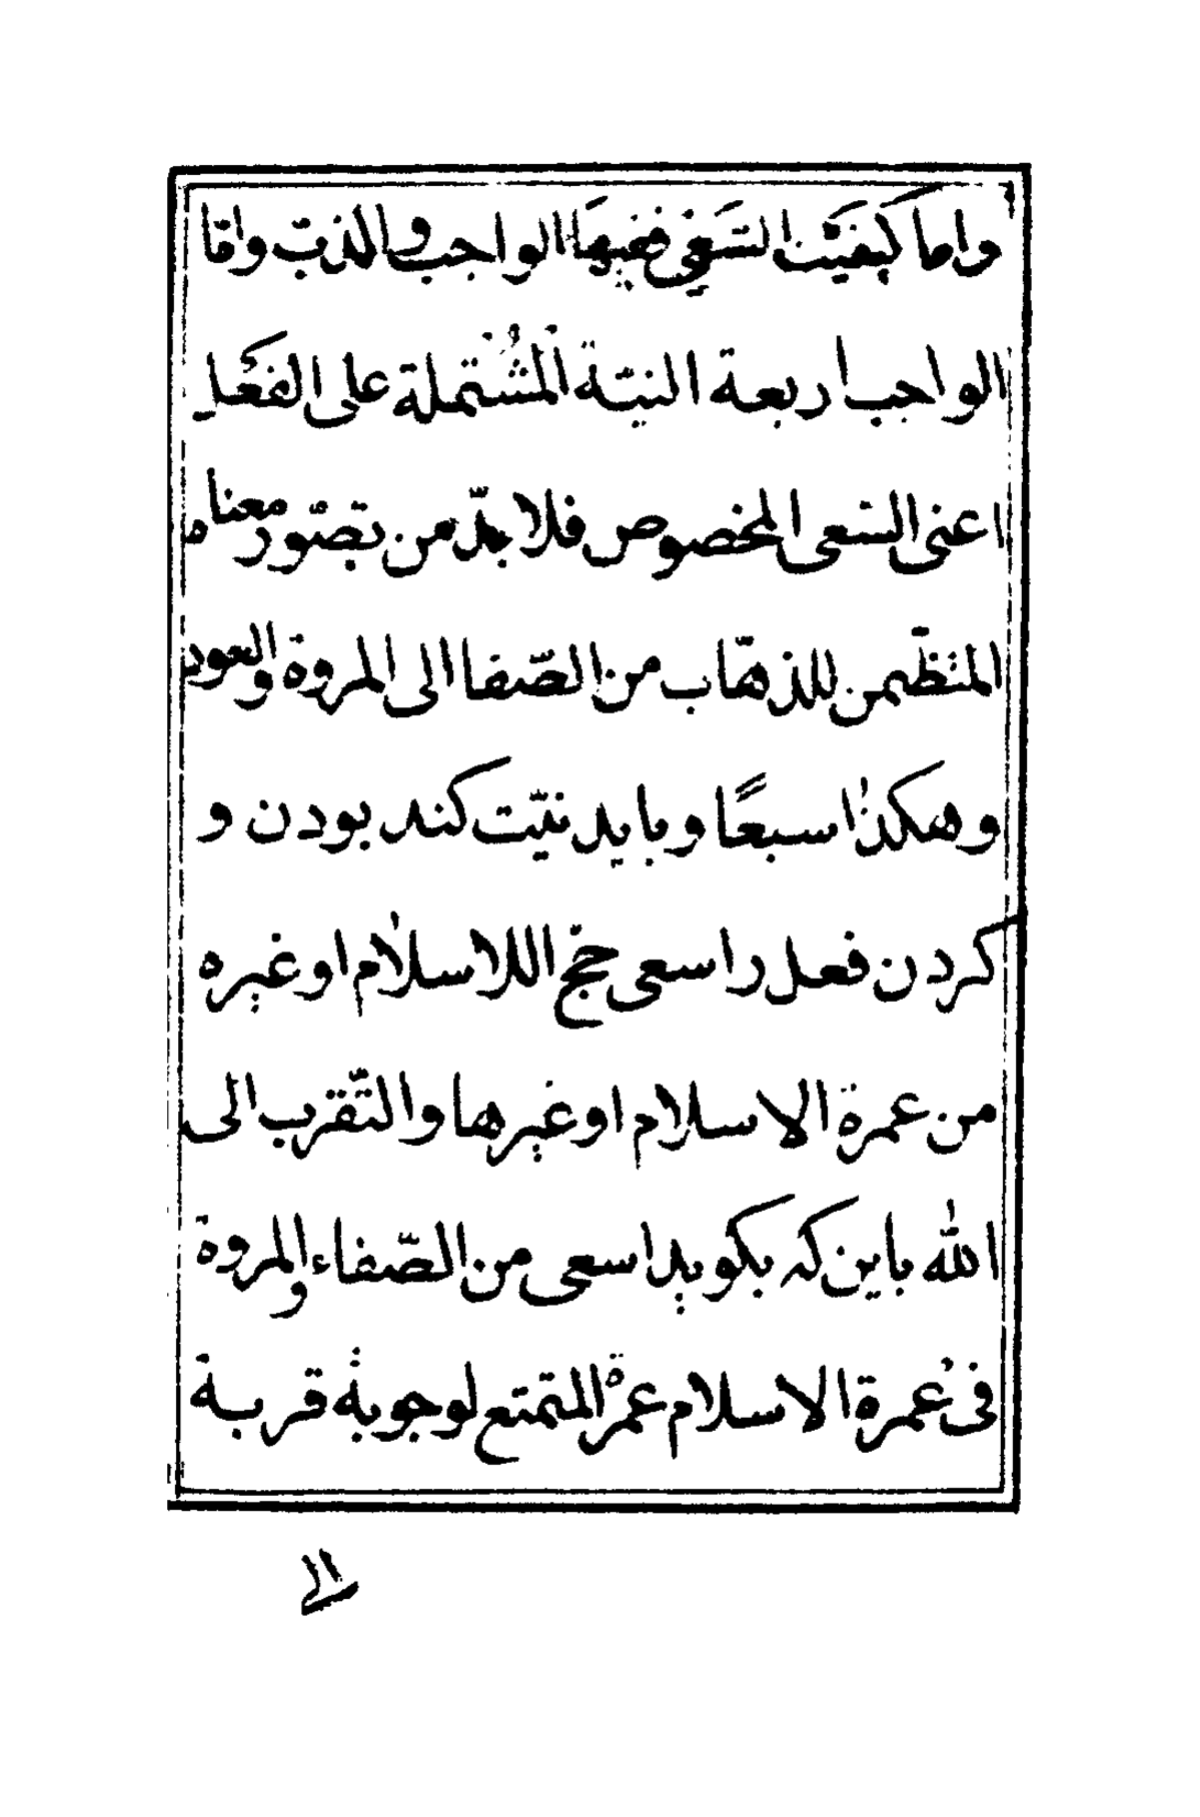 واما كيفيت السَعي ففيهَا الواجب والندب وامّا
الواجب اربعة النيّة المُشتملة على الفعَل
اعنى السّعى المخصوص فلا بدّ من تصوّر معناه
المتظّمن للذهّاب من الصّفا الى المروة والعود
وهكذا سبعًا وبايد نيّت كند بودن و
كردن فعل را سعى حجّ اللاسلام او غيره
من عمرة الاسلام او غيرها والتّقرب الى
الله باين كه بكويد اسعى من الصّفاء والمروة
فى عُمرة الاسلام عمرة المتمتع لوجوبه قربة
الى